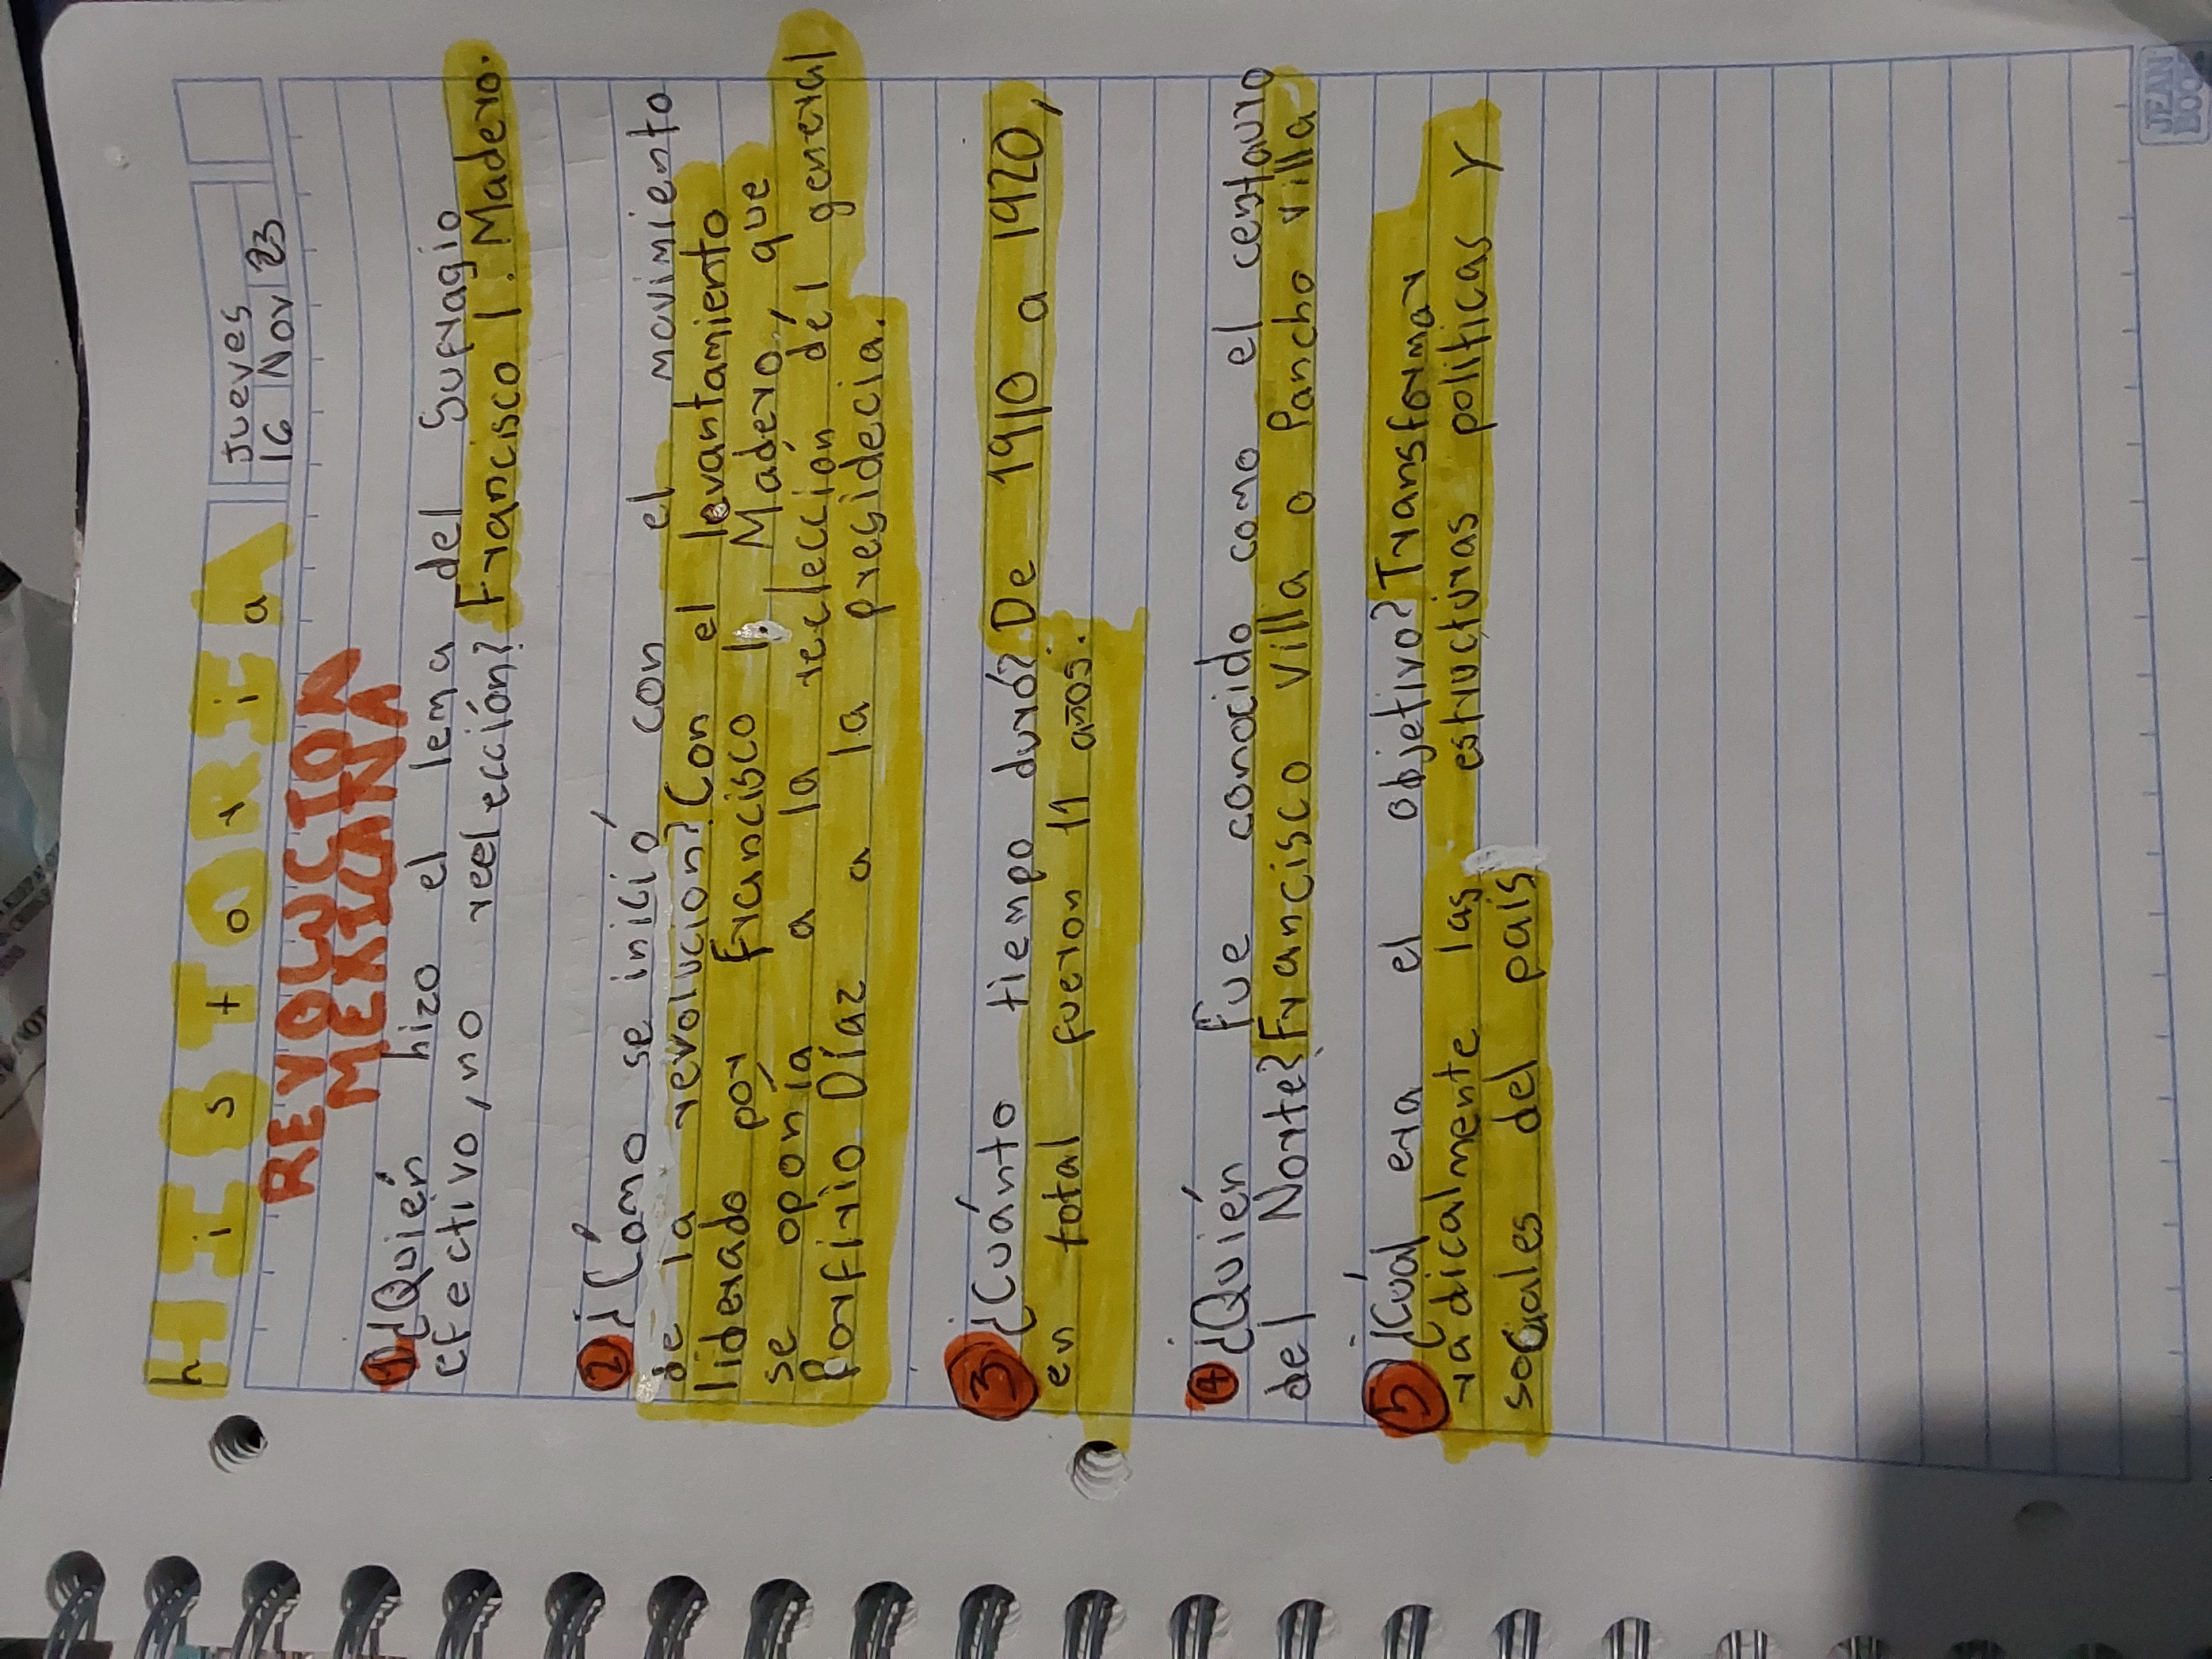 HISTORIA
historia
Jueves
16 Nov 23
REVOLUCION
MEXICANA
1) ¿Quién hizo el lema del Sufragio
efectivo, no reelección? Francisco I. Madero.
2) ¿Cómo se inició con el movimiento
de la revolución? Con el levantamiento
liderado por Francisco I. Madero, que
se oponía a la reelección del general
Porfirio Díaz a la presidecia.
3) ¿Cuánto tiempo duró? De 1910 a 1920,
en total fueron 11 años.
4) ¿Quién fue conocido como el centauro
del Norte? Francisco villa o Pancho villa
5) ¿Cuál era el objetivo? Transformar
radicalmente las estructuras politicas y
sociales del país
JEAN
BOOK